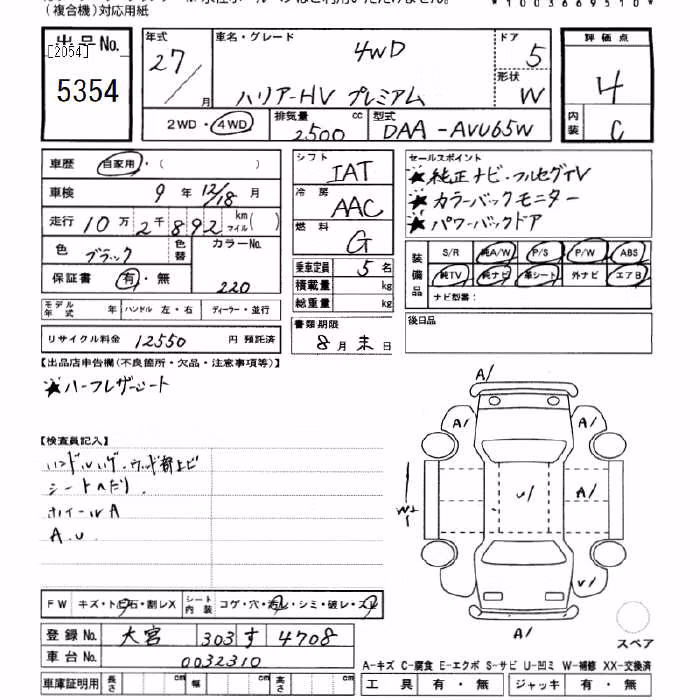 (複合機)対応用紙
出品No.
[2054]
5354
年式
27/月
車名・グレード
4WD
ハリアーHV プレミアム
ドア
5
形状
W
評価点
4
内装
C
2WD・4WD
排気量
2500 cc
型式
DAA-AVU65W
車歴 自家用・( )
車検 9年 12/18月
走行 10万2千892 km マイル( )
色 ブラック
色替
カラーNo.
220
保証書 有・無
モデル年式 年
ハンドル 左・右
ディーラー・並行
リサイクル料金 12550 円 預託済
シフト IAT
冷房 AAC
燃料 G
乗車定員 5名
積載量 kg
総重量 kg
書類期限
8月末日
セールスポイント
★純正ナビ・フルセグTV
★カラーバックモニター
★パワーバックドア
装備品
S/R 純A/W P/S P/W ABS
純TV 純ナビ 革シート 外ナビ エアB
ナビ型番:
後日品
【出品店申告欄(不良箇所・欠品・注意事項等)】
★ハーフレザーシート
【検査員記入】
シートヘたり.
ホイールA
A.U.
FW キズ・ト石・割レX
シート内装 コゲ・穴・汚レ・シミ・破レ・スレ
登録No. 大宮 303 す 4708
車台No. 0032310
車庫証明用 長さ cm 幅 cm 高さ cm
A/
A/ A/
W+ U/ A/
V/
A/
スペア
A-キズ C-腐食 E-エクボ S-サビ U-凹ミ W-補修 XX-交換済
工具 有・無 ジャッキ 有・無